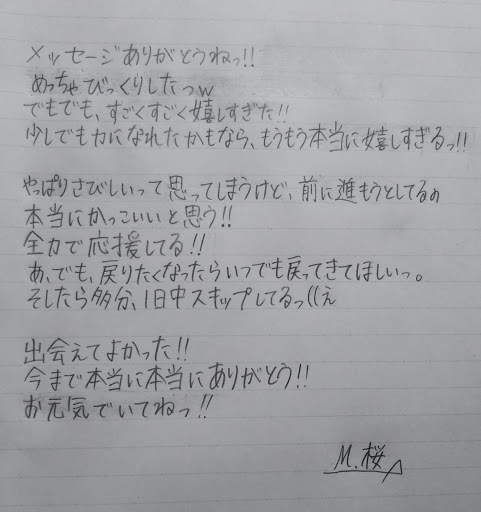 メッセージありがとうねっ!!
めっちゃびっくりしたっw
でもでも、すごくすごく嬉しすぎた!!
少しでも力になれたかもなら、もうもう本当に嬉しすぎるっ!!
やっぱりさびしいって思ってしまうけど、前に進もうとしてるの
本当にかっこいいと思う!!
全力で応援してる!!
あ、でも、戻りたくなったらいつでも戻ってきてほしいっ。
そしたら多分、1日中スキップしてるっ((え
出会えてよかった!!
今まで本当に本当にありがとう!!
お元気でいてねっ!!
M.桜